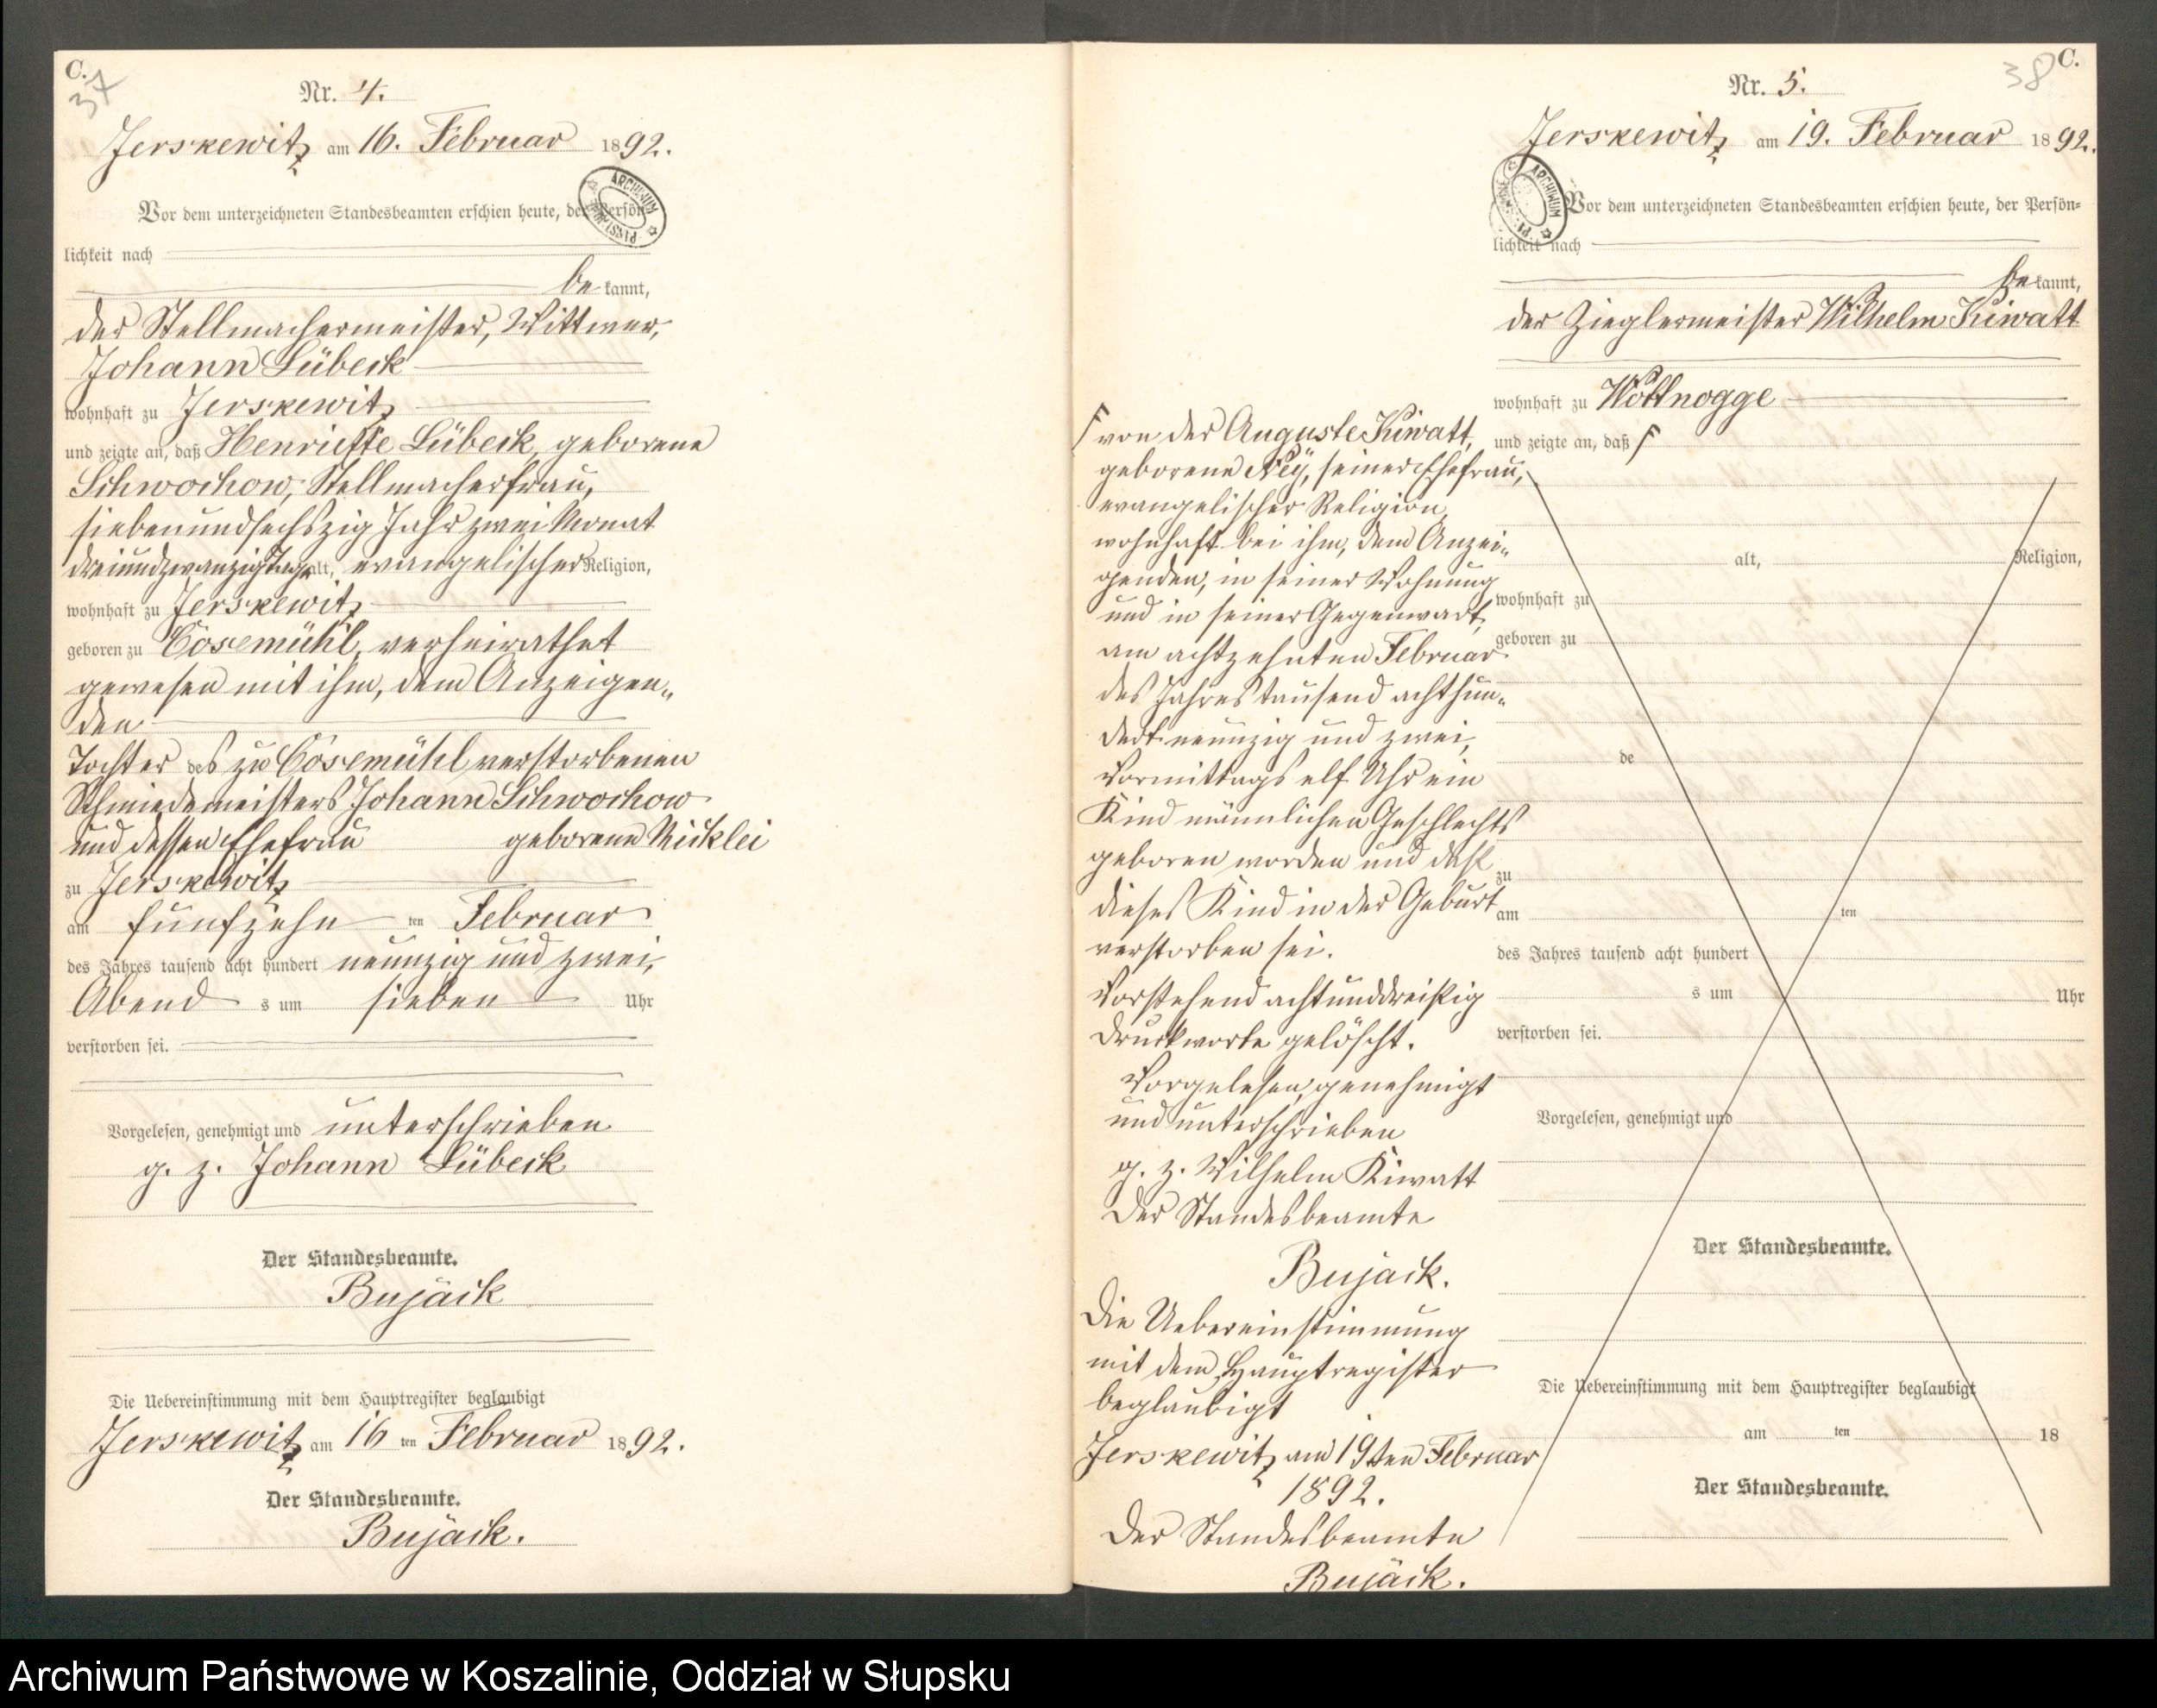 C.
37
Nr. 4.
Jerskewitz am 16. Februar 1892.
Vor dem unterzeichneten Standesbeamten erschien heute, der Persön-
lichkeit nach
bekannt,
der Stellmachermeister, Wittwer,
Johann Lübeck
wohnhaft zu Jerskewitz
und zeigte an, daß Henriette Lübeck, geborene
Schwochow, Stellmacherfrau,
siebenundsechszig Jahr zwei Monat
dreiundzwanzig Tage alt, evangelischer Religion,
wohnhaft zu Jerskewitz
geboren zu Cösemühl, verheirathet
gewesen mit ihm, dem Anzeigen-
den
Tochter des zu Cösemühl verstorbenen
Schmiedemeisters Johann Schwochow
und dessen Ehefrau geborene Micklei
zu Jerskewitz
am fünfzehnten Februar
des Jahres tausend acht hundert neunzig und zwei,
Abends um sieben Uhr
verstorben sei.
Vorgelesen, genehmigt und unterschrieben
g. z. Johann Lübeck
Der Standesbeamte.
Bujack
Die Uebereinstimmung mit dem Hauptregister beglaubigt
Jerskewitz am 16ten Februar 1892.
Der Standesbeamte.
Bujack.
38
C.
Nr. 5.
Jerskewitz am 19. Februar 1892.
ARCHIWUM
Vor dem unterzeichneten Standesbeamten erschien heute, der Persön-
lichkeit nach
bekannt,
der Zieglermeister Wilhelm Kiwatt
wohnhaft zu Wottnogge
und zeigte an, daß Γ
Γ von der Auguste Kiwatt,
geborene Ney, seiner Ehefrau,
evangelischer Religion,
wohnhaft bei ihm, dem Anzei-
genden, in seiner Wohnung
und in seiner Gegenwart,
am achtzehnten Februar
des Jahres tausend achthun-
dert neunzig und zwei,
Vormittags elf Uhr ein
Kind männlichen Geschlechts
geboren worden und daß
dieses Kind in der Geburt
verstorben sei.
Vorstehend achtunddreißig
Druckworte gelöscht.
Vorgelesen, genehmigt
und unterschrieben
g. z. Wilhelm Kiwatt
Der Standesbeamte
Bujack.
Die Uebereinstimmung
mit dem Hauptregister
beglaubigt
Jerskewitz am 19ten Februar
1892.
Der Standesbeamte
Bujack.
alt, Religion,
wohnhaft zu
geboren zu
de
zu
am ten
des Jahres tausend acht hundert
s um Uhr
verstorben sei.
Vorgelesen, genehmigt und
Der Standesbeamte.
Die Uebereinstimmung mit dem Hauptregister beglaubigt
am ten 18
Der Standesbeamte.
Archiwum Państwowe w Koszalinie, Oddział w Słupsku